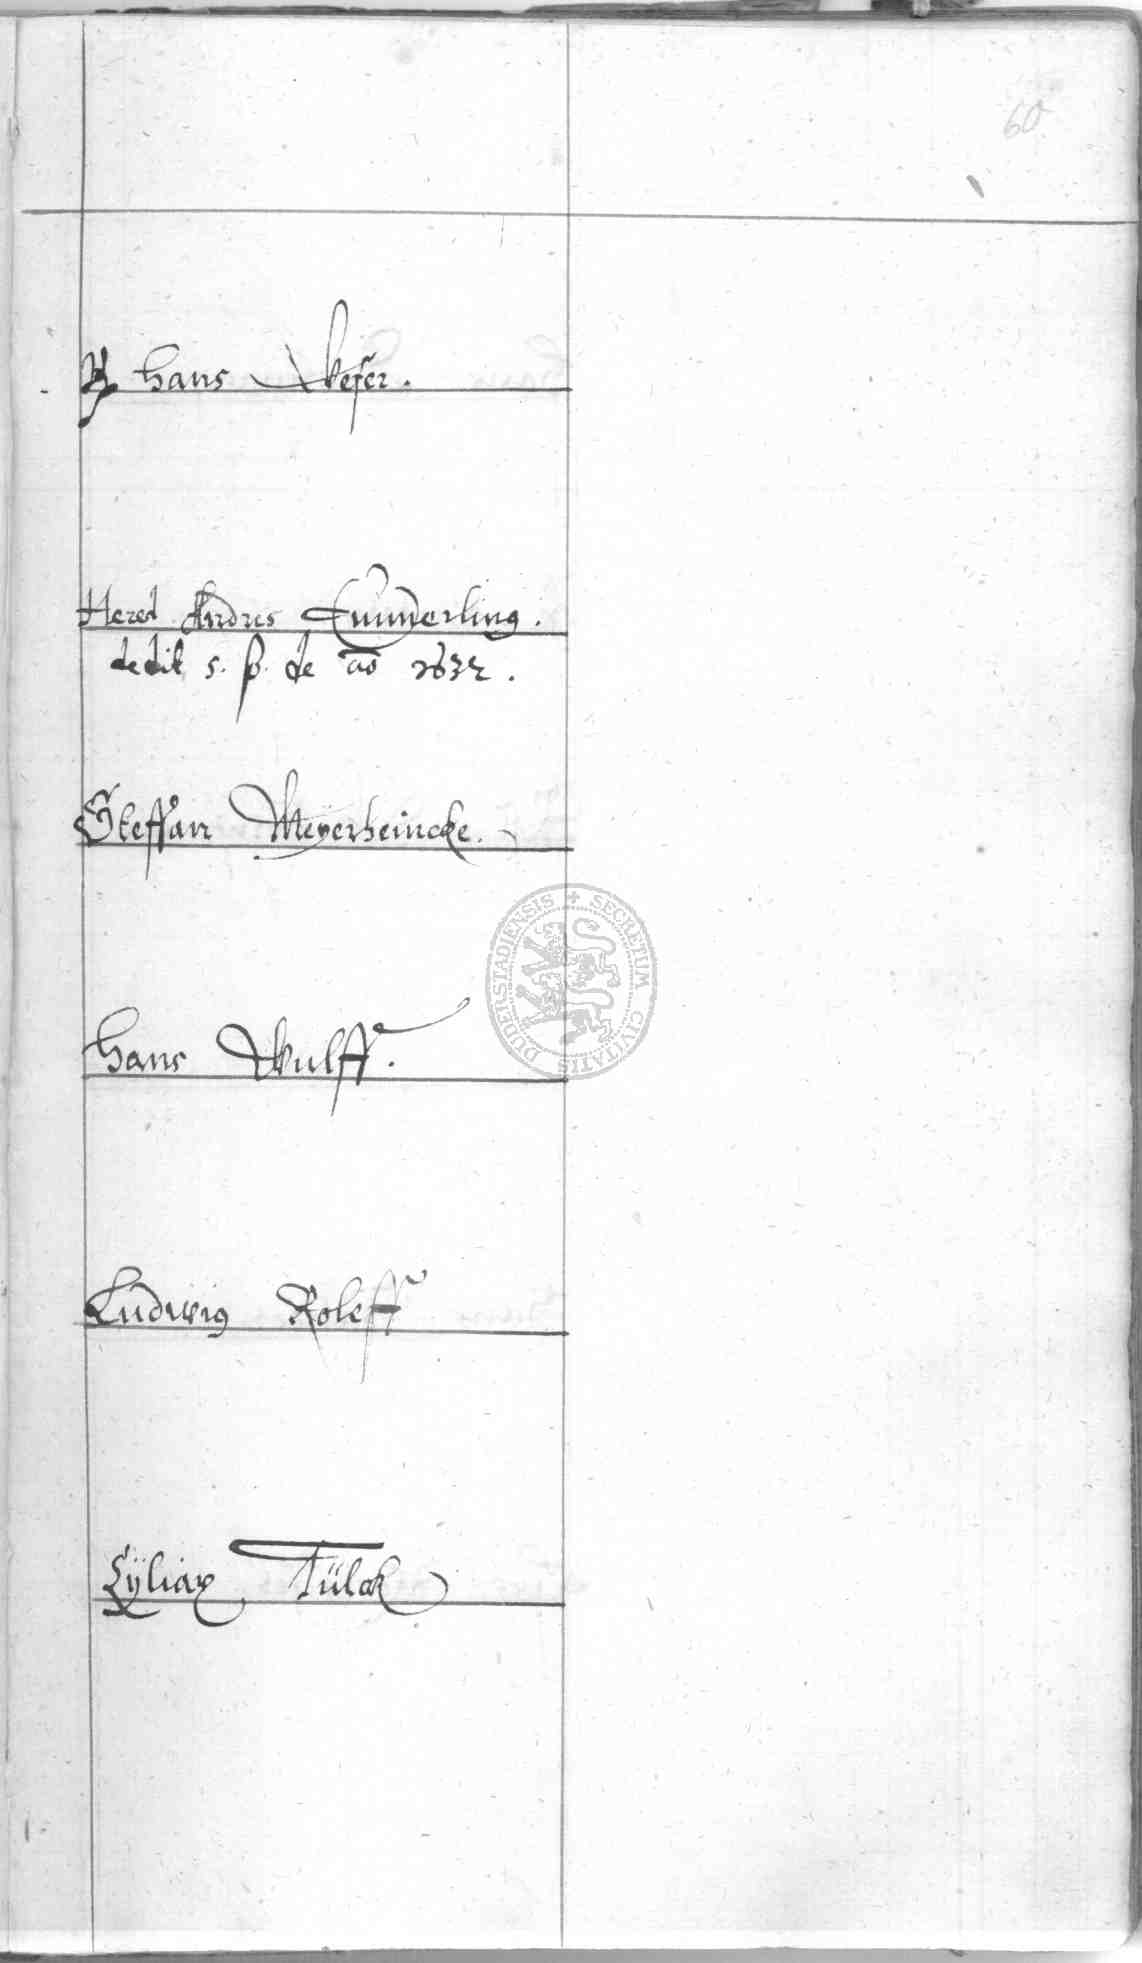 60
Hans Weser.
Hered Andres Emmerling.
dedit 5. ß. de ao 1632.
Steffan Meyerheincke.
Hans Wulff.
Ludwig Roleff
Cÿliax Tülck
DUDERSTADIENSIS + SECRETUM CIVITATIS